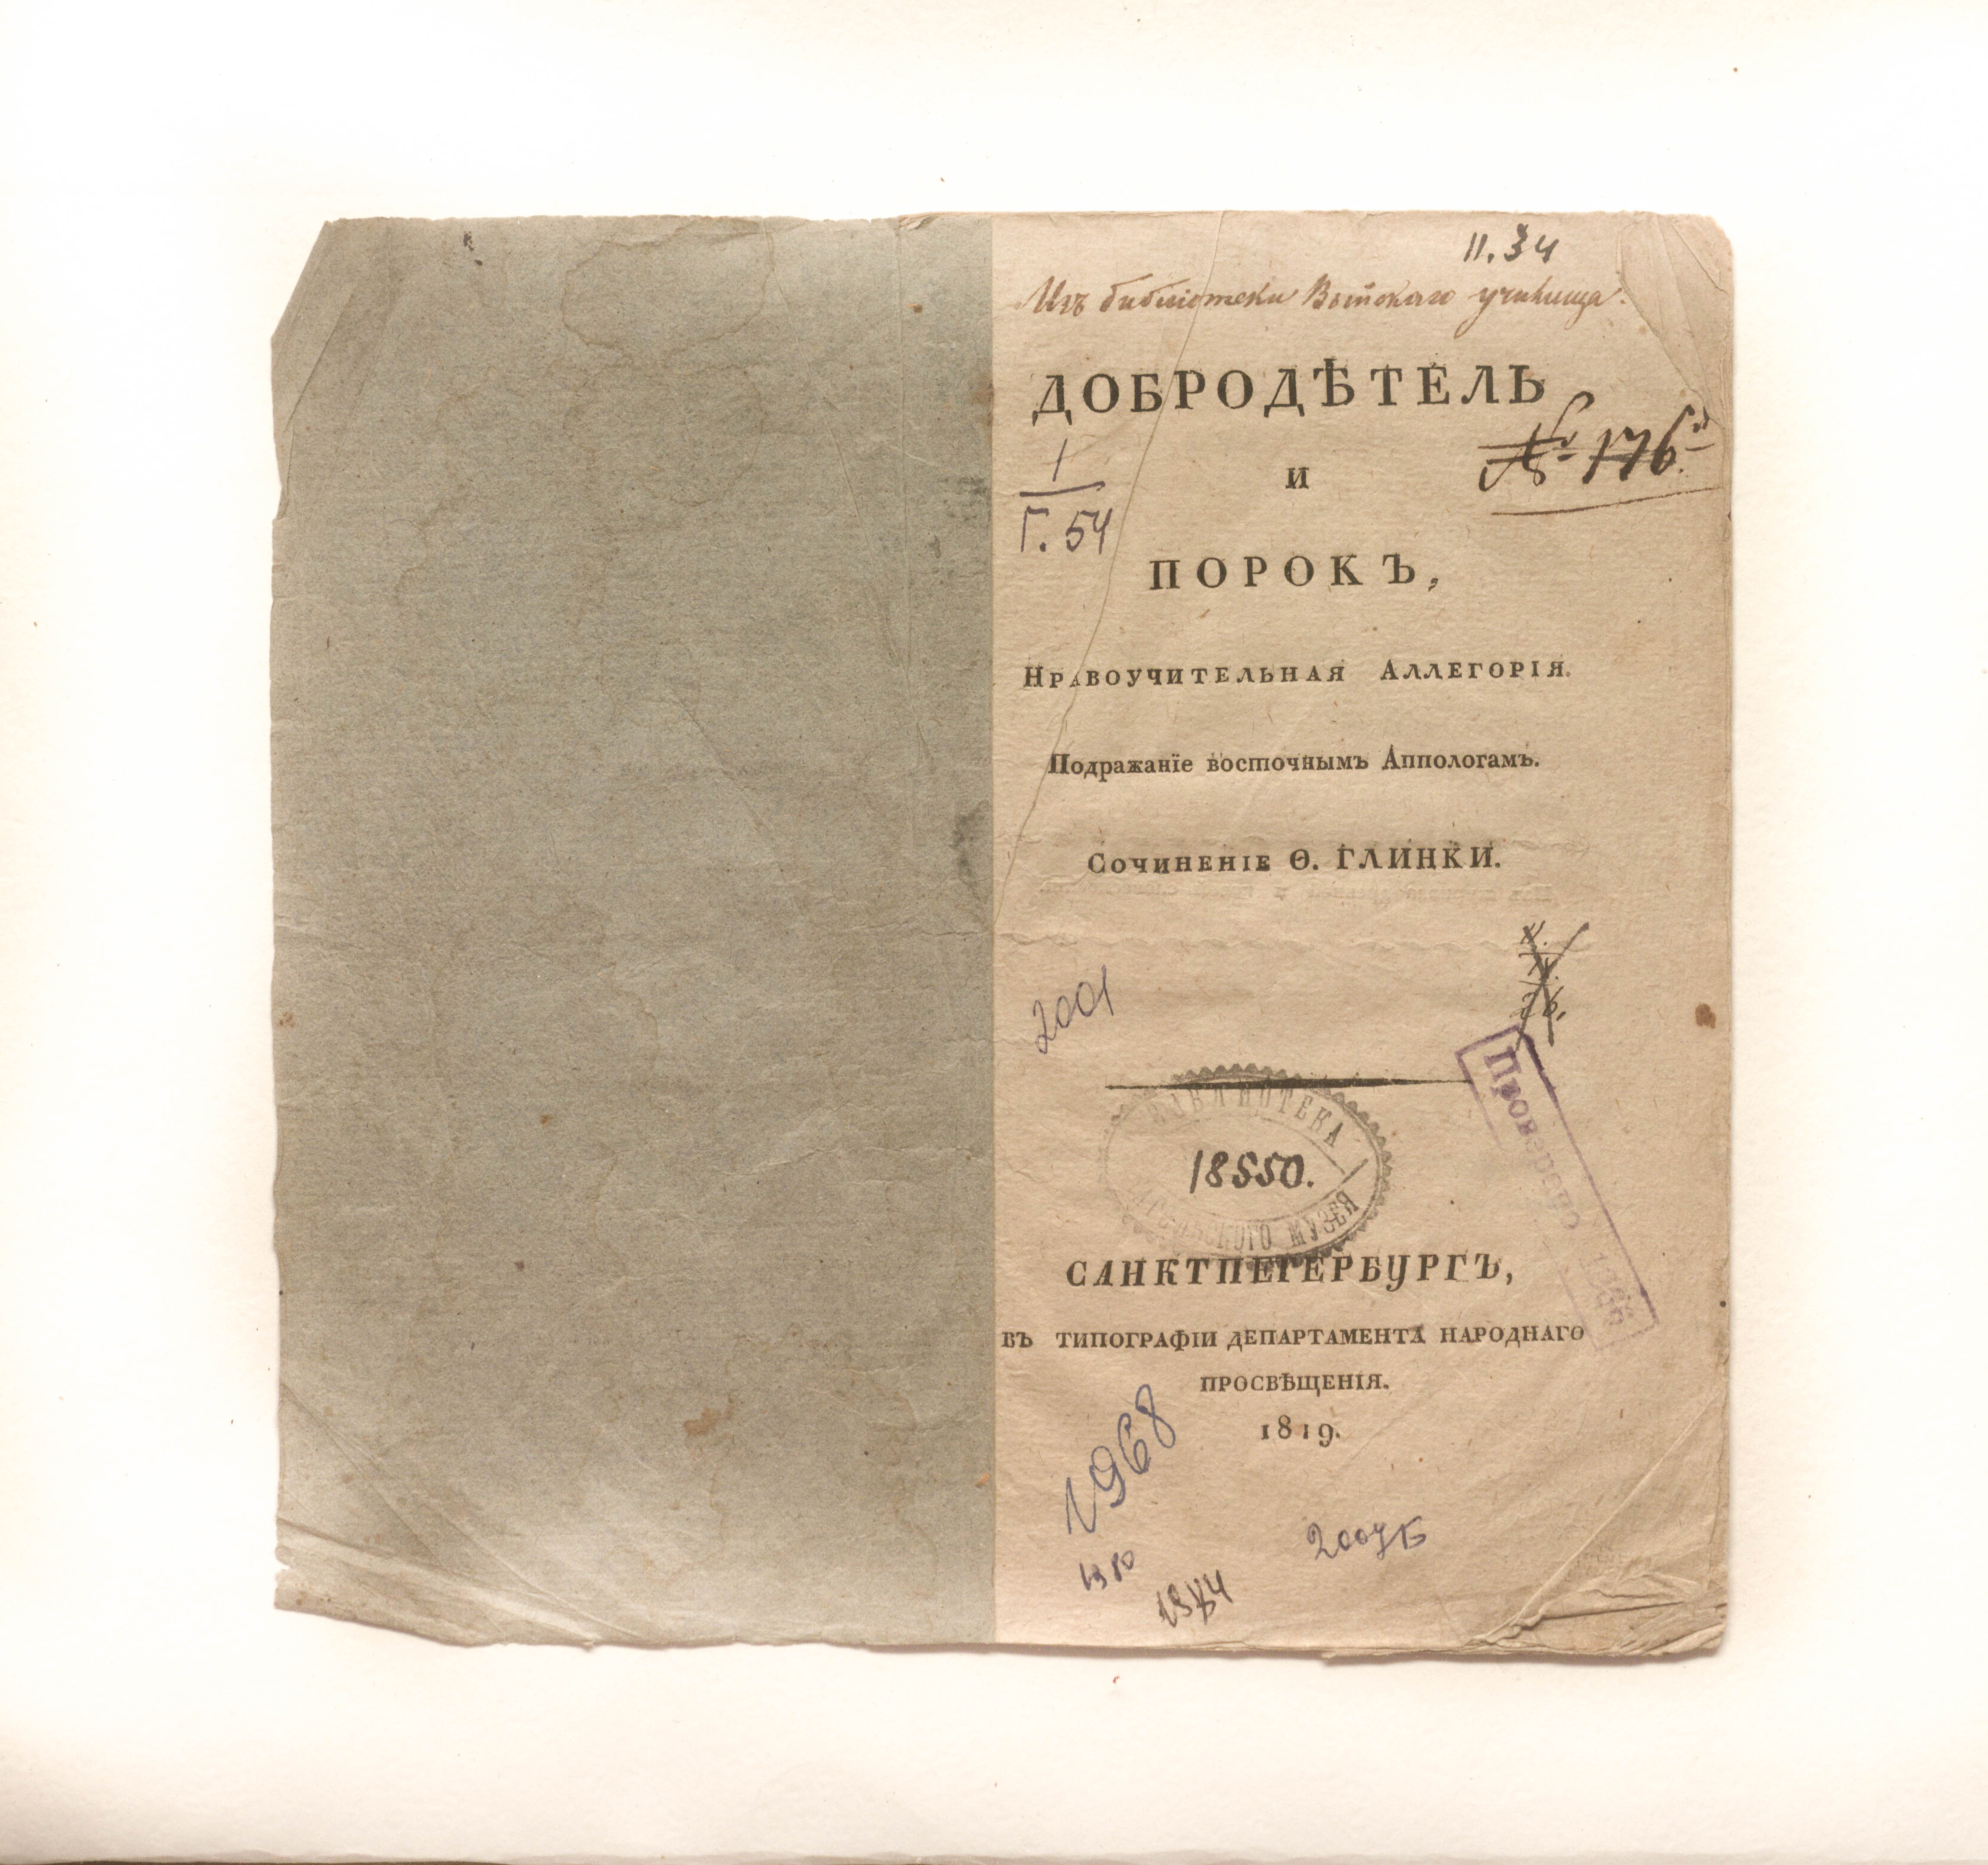 II. 34
Изъ библіотеки Выйскаго училища.
ДОБРОДѢТЕЛЬ
№ 176й
И
1
Г. 54
ПОРОКЪ,
Нравоучительная Аллегорія.
Подражанїе восточнымъ Аппологамъ.
Сочиненіе Ѳ. ГЛИНКИ.
2001
Проверено
БИБЛИОТЕКА
18550.
МУЗЕЯ
САНКТПЕТЕРБУРГЪ,
ВЪ ТИПОГРАФІИ ДЕПАРТАМЕНТА НАРОДНАГО
ПРОСВѢЩЕНІЯ.
1819.
1968
2007Б
1980
1984